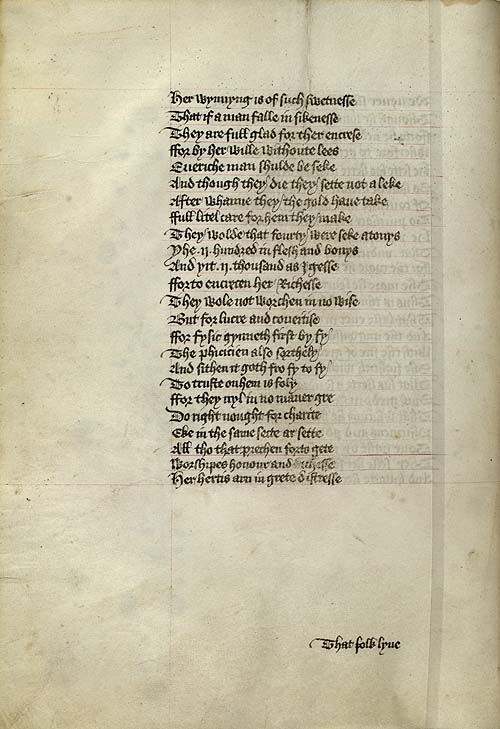 Her wynnyng is of such swetnesse
That if a man falle in sikenesse
They are full glad for ther encrese
ffor by her wille withoute lees
Eueriche man shulde be seke
And though they die they sette not a leke
After whanne they the gold haue take
ffull litel care for hem they make
They wolde that fourty were seke atonys
Yhe .ij. hundred in flesh and bonys
And yit .ij. thousand as I gesse
fforto encrecen her Richesse
They wole not worchen in no wise
But for lucre and coueitise
ffor fysic gynneth first by fy
The phicicien also sothely
And sithen it goth fro fy to fy
To truste on hem is foly
ffor they nyl in no maner gre
Do right nought for charite
Eke in the same sette ar sette
All tho that prechen forto gete
Worshipes honour and richesse
Her hertis arn in grete distresse
That folk lyue